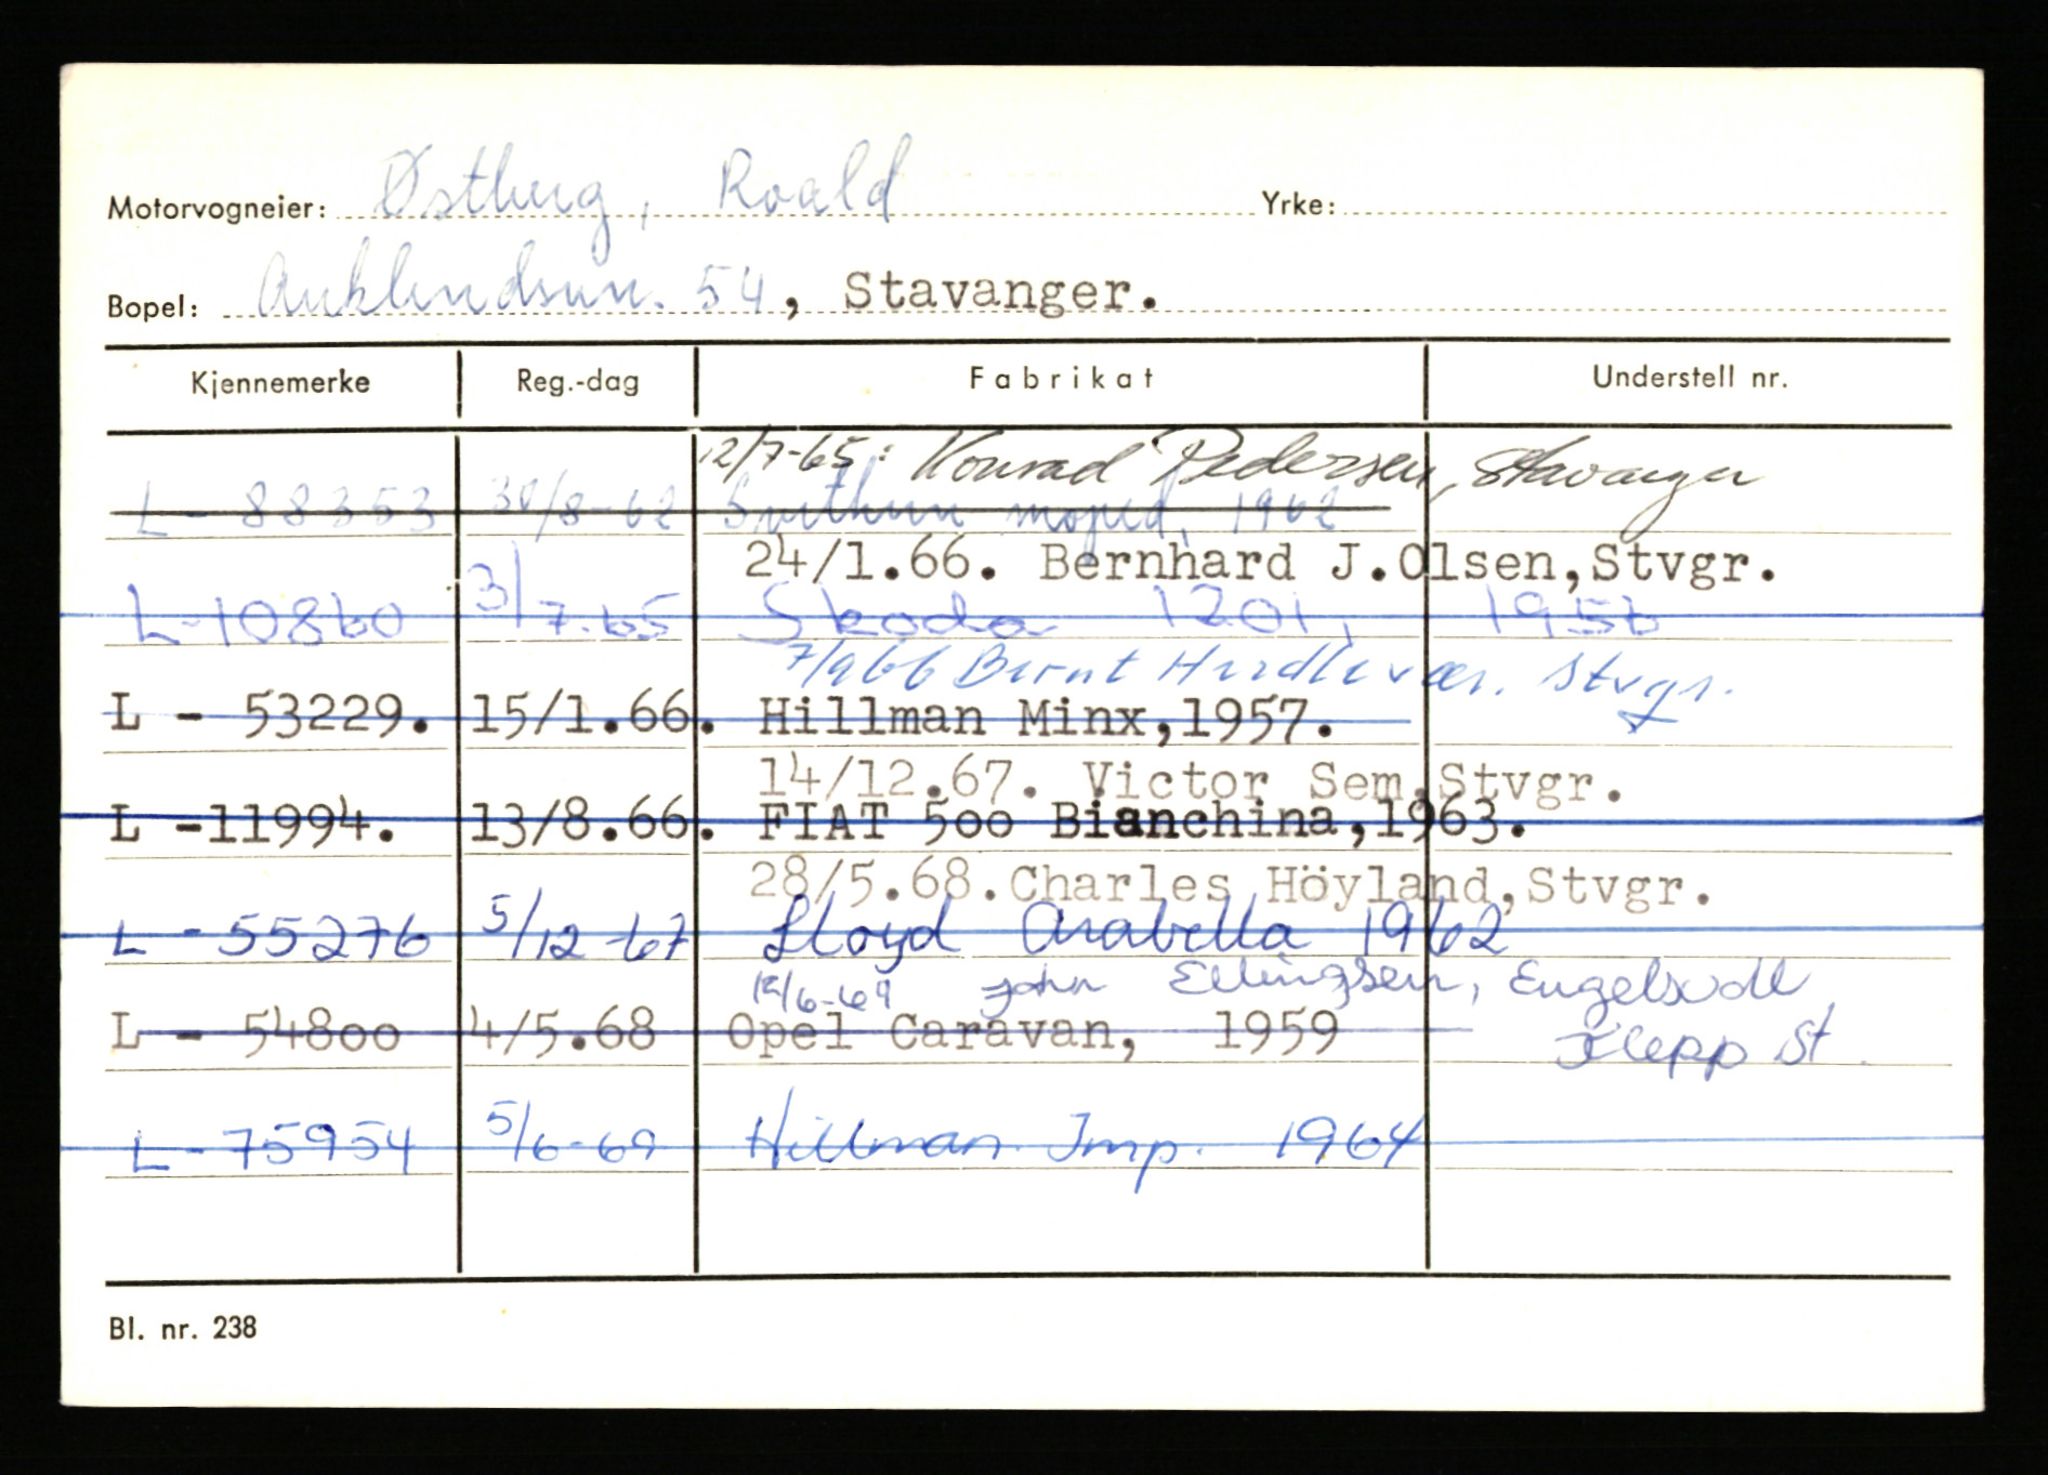 Motorvogneier: Østberg, Roald Yrke:
Bopel: Auklendsvn. 54, Stavanger.
Kjennemerke Reg.-dag Fabrikat Understell nr.
12/7-65: Konrad Pedersen, Stavanger
L - 88353 30/8-62 Svithun moped, 1962
24/1.66. Bernhard J.Olsen,Stvgr.
L-10860 3/7.65 Skoda 1201, 1956
7/9 66 Bernt Hurdlevær. Stvgr.
L - 53229. 15/1.66. Hillman Minx,1957.
14/12.67. Victor Sem,Stvgr.
L -11994. 13/8.66. FIAT 500 Bianchina,1963.
28/5.68.Charles Höyland,Stvgr.
L - 55276 5/12-67 Lloyd Arabella 1962
12/6-69 John Ellingsen, Engelsvoll
L - 54800 4/5.68 Opel Caravan, 1959 Klepp St.
L - 75954 5/6-69 Hillman Imp. 1964
Bl. nr. 238